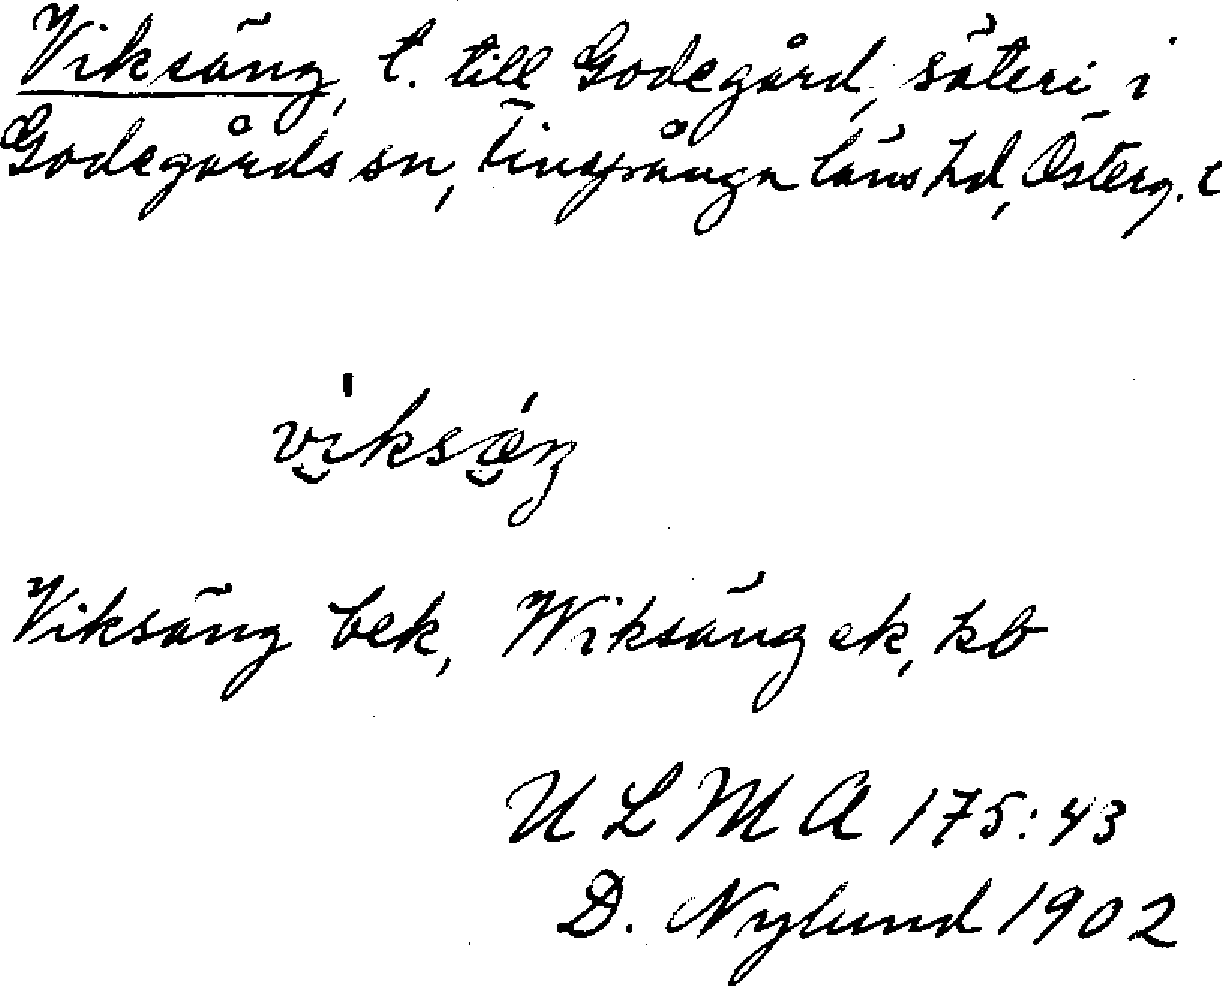 Viksäng, t. till Godegård, säteri i
Godegårds sn, Finspånga läns hd, Österg. l
Viksäng bek, Wiksäng ek, kb
ULMA 175:43
D. Nylund 1902